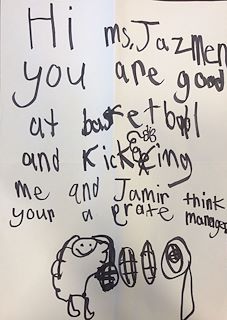 Hi ms. Jazmen
you are good
at basketball
and kickking
me and Jamir think
your a grate manager